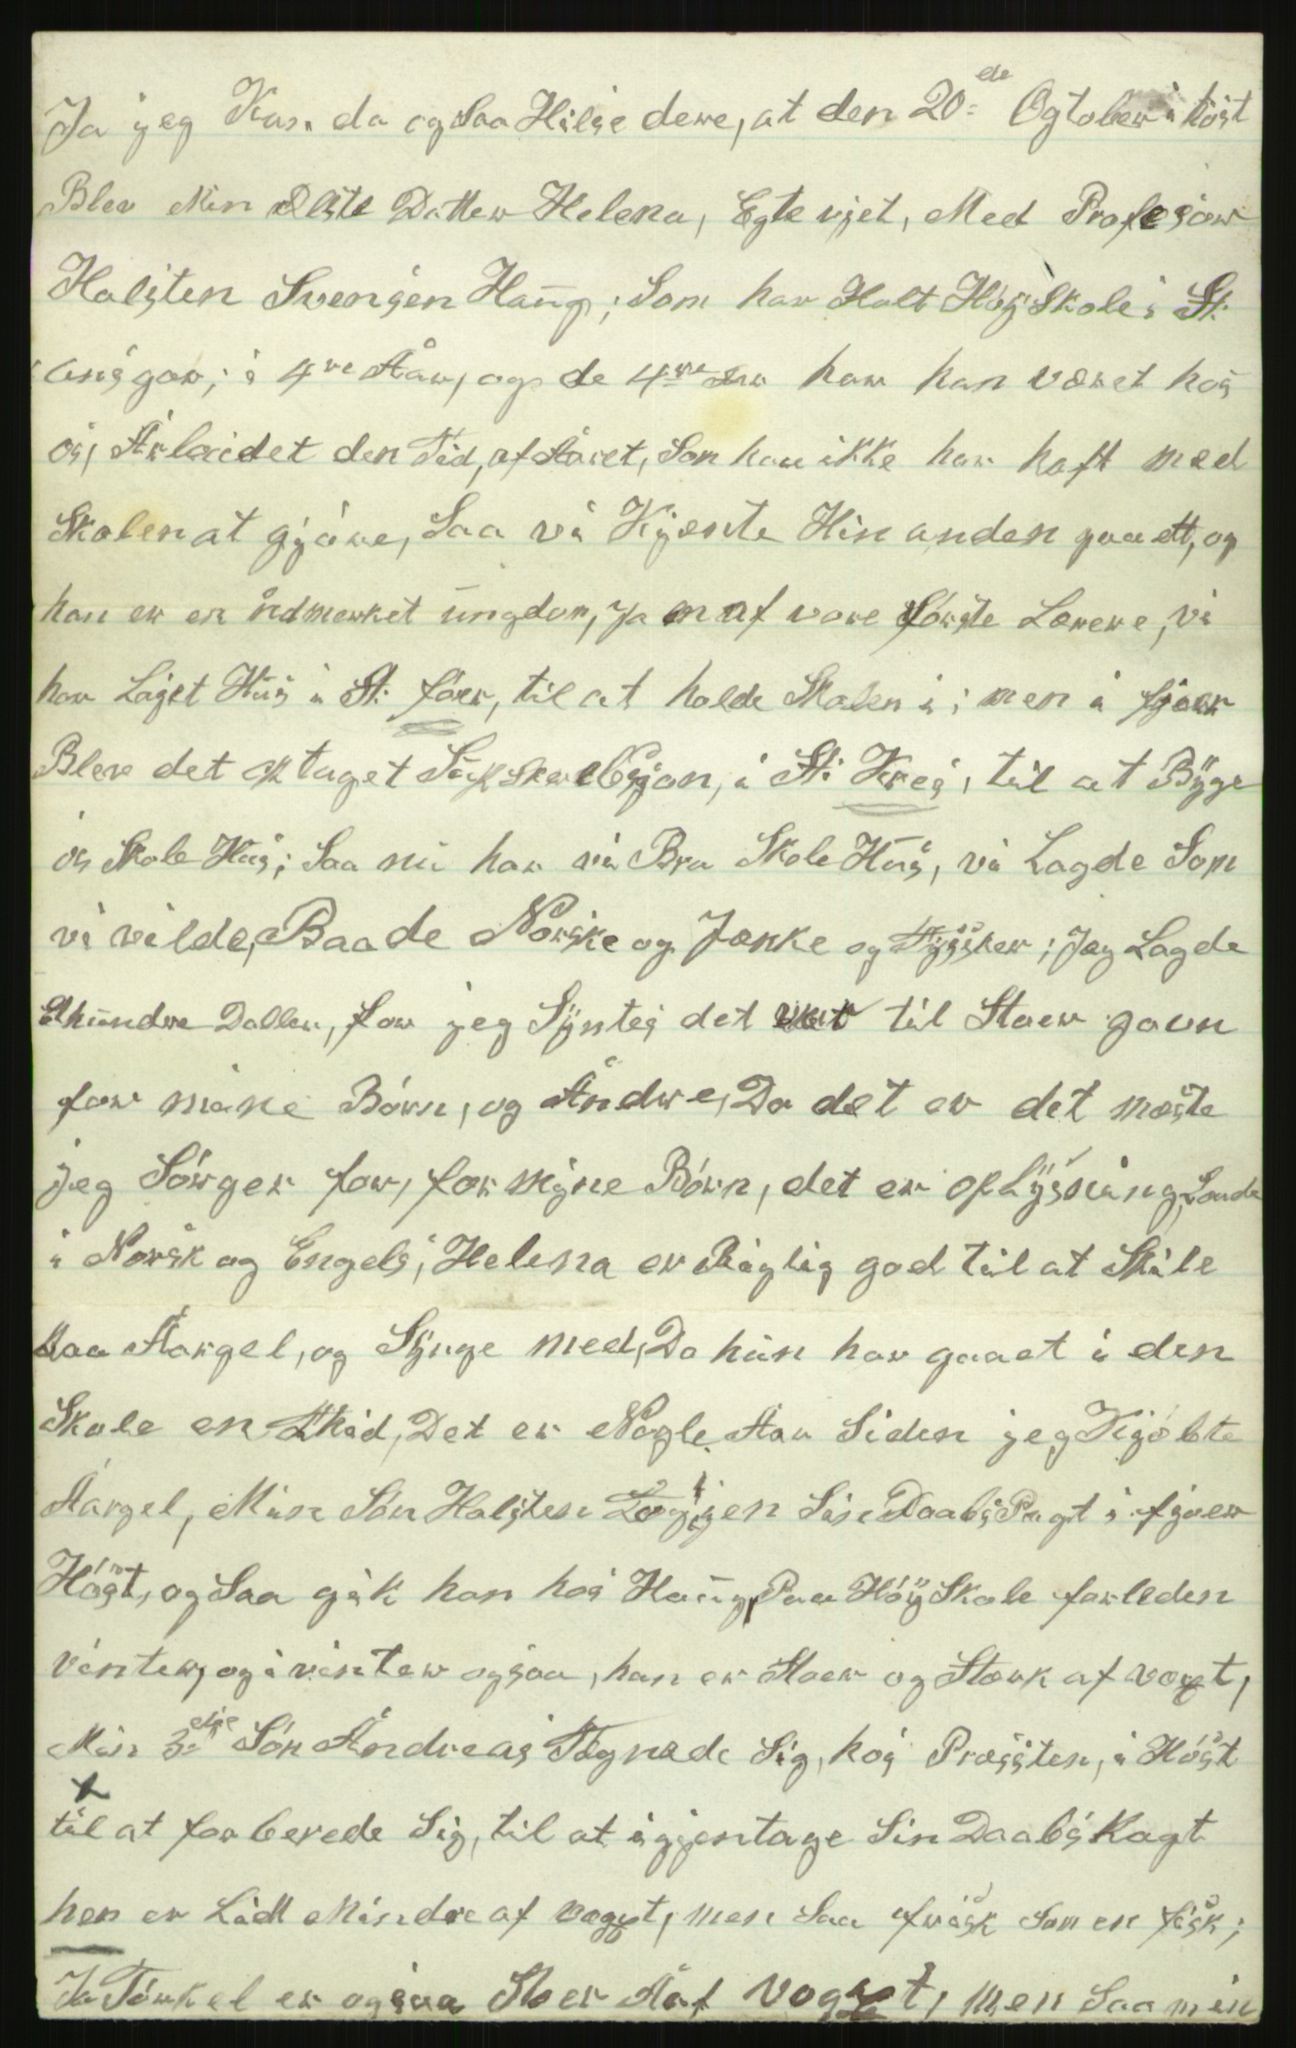 Ja jeg Kan da ogsaa Hilse dere, at den 20de Ogtober i høst
Blev Min Elste Datter Helena, Egte vjet, Med Profesor
Halsten Svensen Haug; Som har Holt Høgskole i St.
ansgar, i 4re Aar, og de 4re har han været hos
os, Arbeidet den Tid, af Aaret, Som han ikke har haft med
Skolen at gjøre, Saa vi Kjente Hin anden paa ett, og
han er en udmerket ungdom, Ja en af vore første Lærere, vi
har Lajet Hus i St. før, til at holde Skolen i; men i fjoer
Blev det optaget Supskrebsjon, i St. Kres, til at Byge
os Skole Hus; Saa nu har vi Bra Skole Hus, vi Lagde Som
vi vilde, Baade Norske og Janke og Tyssker; Jeg Lagde
hundre Daller, for jeg Syntes det var til Stoer gavn
for mine Børn, og Andre, Da det er det meste
jeg Sørger for, for mine Børn, det er oplysning,
i Norsk og Engels; Helena er Rigtig god til at Spile
paa Aargel, og Synge med, Da hun har gaaet i den
Skole en Tid, Det er Nogle Aar Siden jeg Kjøbte
Aargel, Min Søn Halsten Tog ijen Sin Daabs Pagt i fjoer
Høst, og Saa gik han hos Haug, Paa Høy Skole forleden
vinter, og i vinter ogsaa, han er Stoer og Stærk af vægt,
Min 3die Søn Andreas Tegnede Sig, hos Presten, i Høst
til at forberede Sig, til at igjentage Sin Daabs Pagt
han er Lidt Mindre af vægt, men Saa frisk Som en fisk;
Ja Torkel er ogsaa Stoer Aaf Vogst, men Saa min